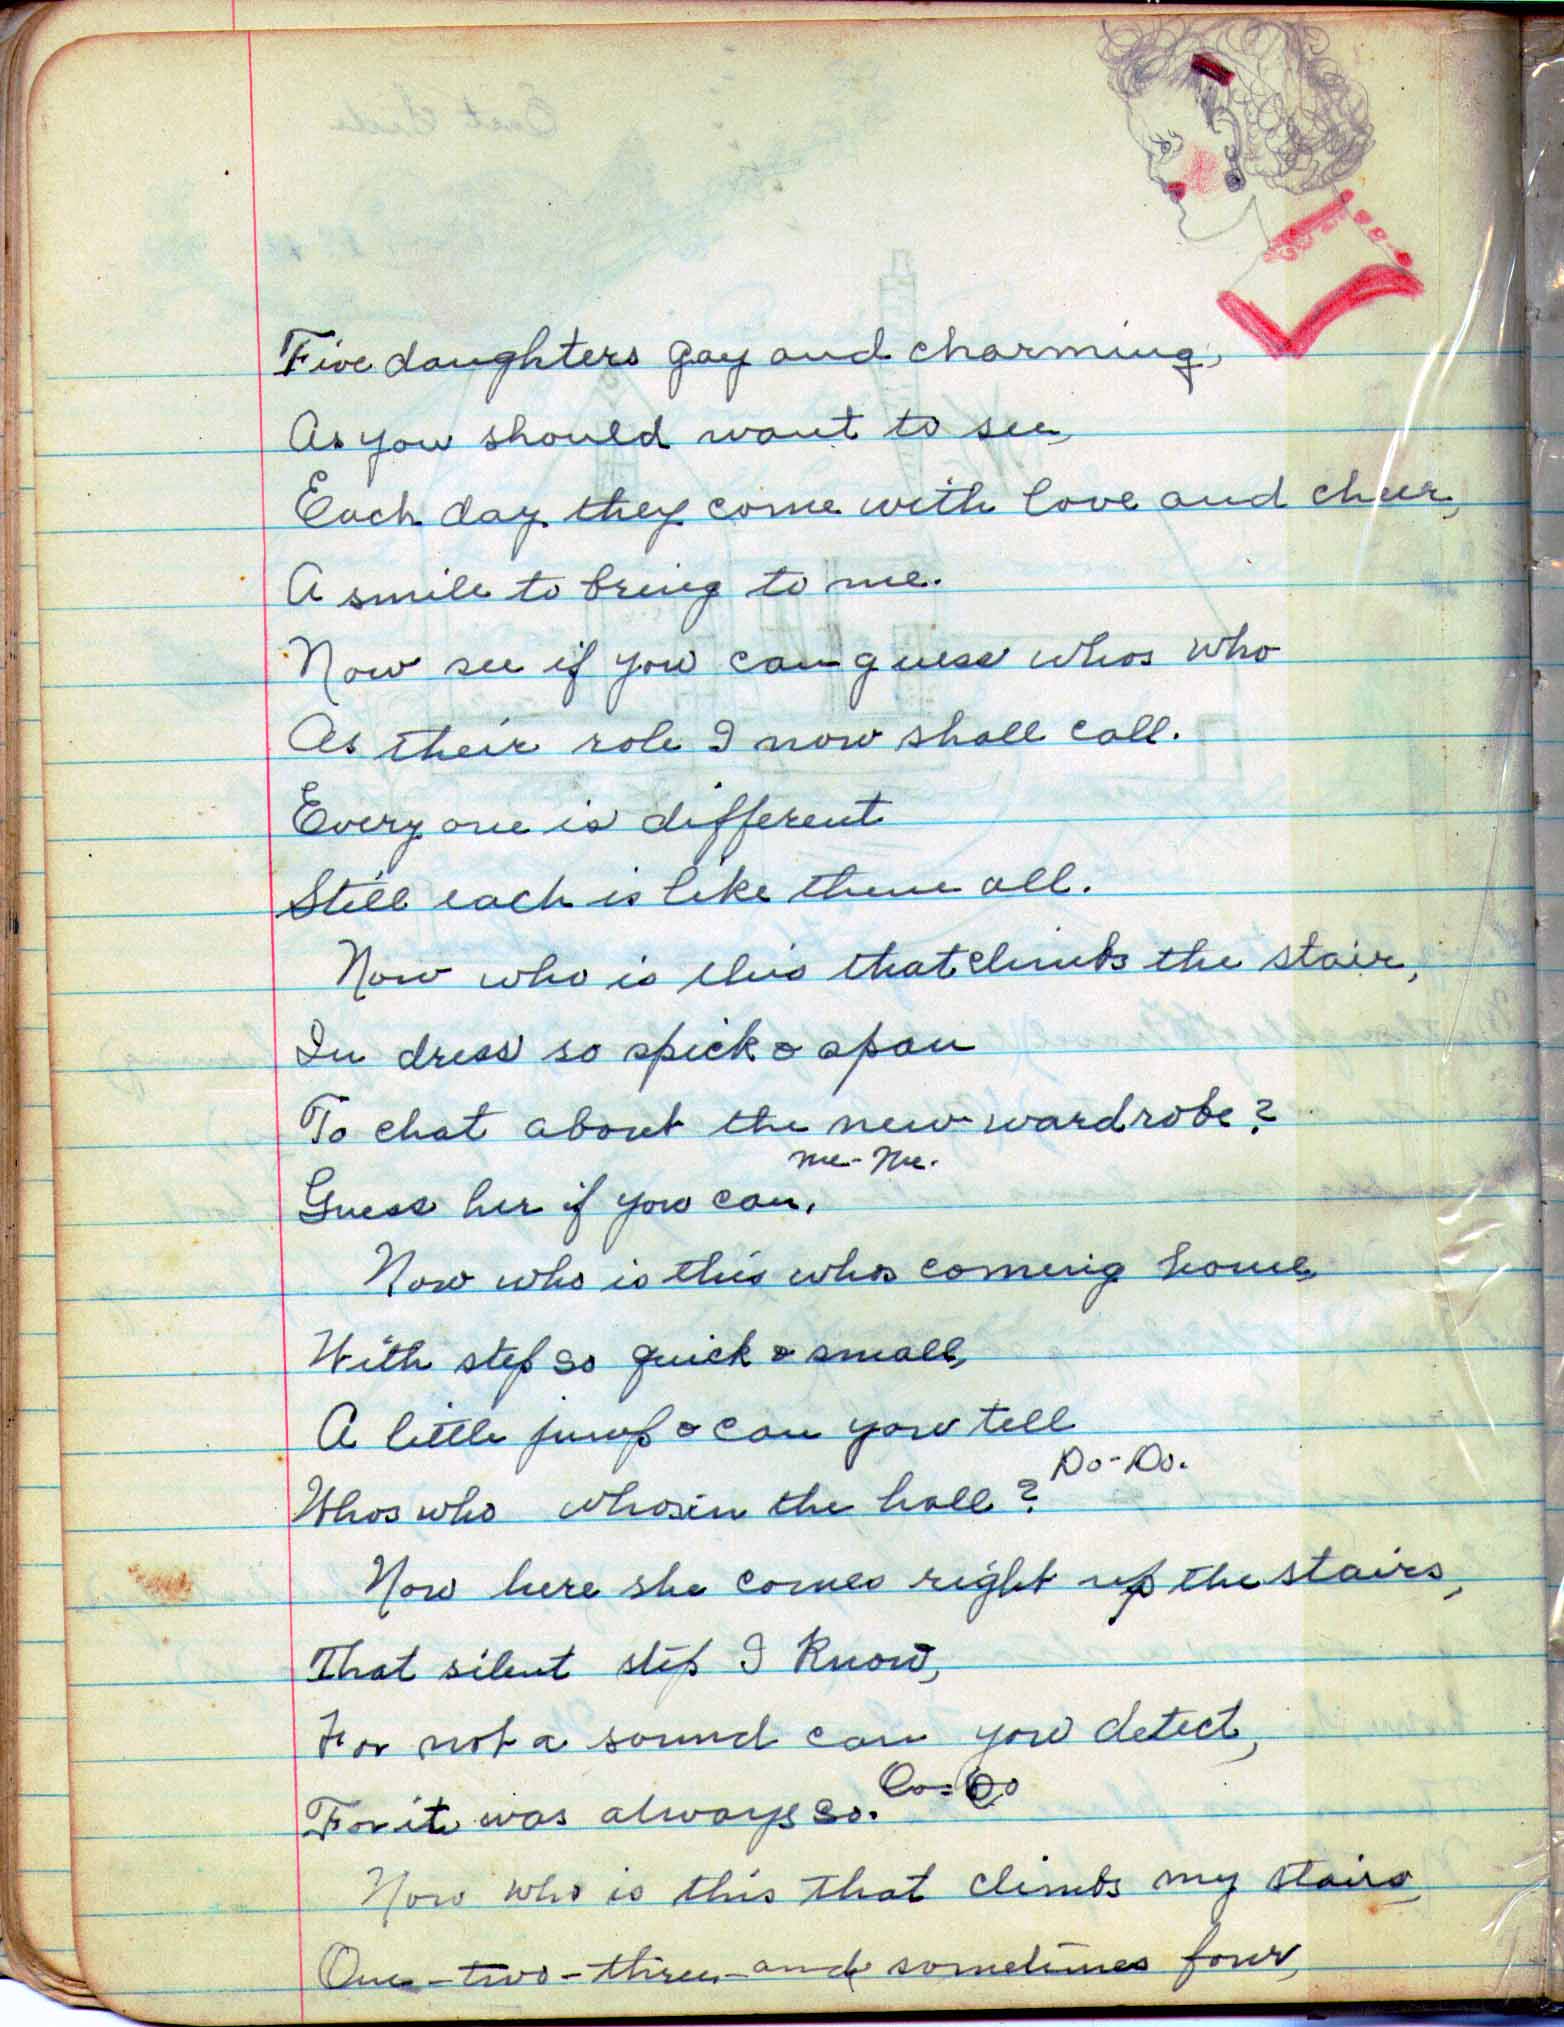 Five daughters gay and charming,
As you should want to see,
Each day they come with love and cheer,
A smile to bring to me.
Now see if you can guess whos who
As their role I now shall call.
Every one is different
Still each is like them all.
Now who is this that climbs the stair,
In dress so spick & span
To chat about the new wardrobe?
Me-Me.
Guess her if you can,
Now who is this whos coming home,
With step so quick & small,
A little jump & can you tell
Do-Do.
Whos who whos in the hall?
Now here she comes right up the stairs,
That silent step I know,
For not a sound can you detect,
For it was always so.
Now who is this that climbs my stairs,
One-two-three-and sometimes four,